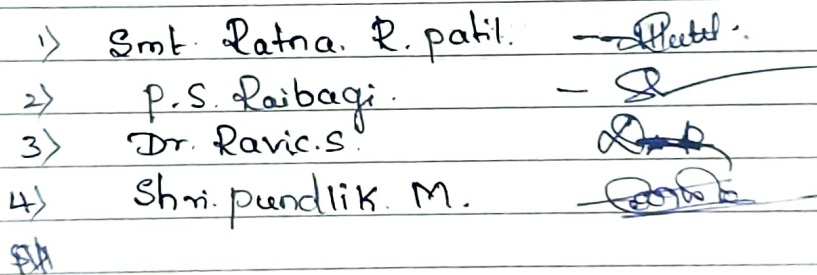 1) Smt. Ratna. R. patil.
2) P. S. Raibagi.
3) Dr. Ravic.S.
4) Shri. pundlik. M.